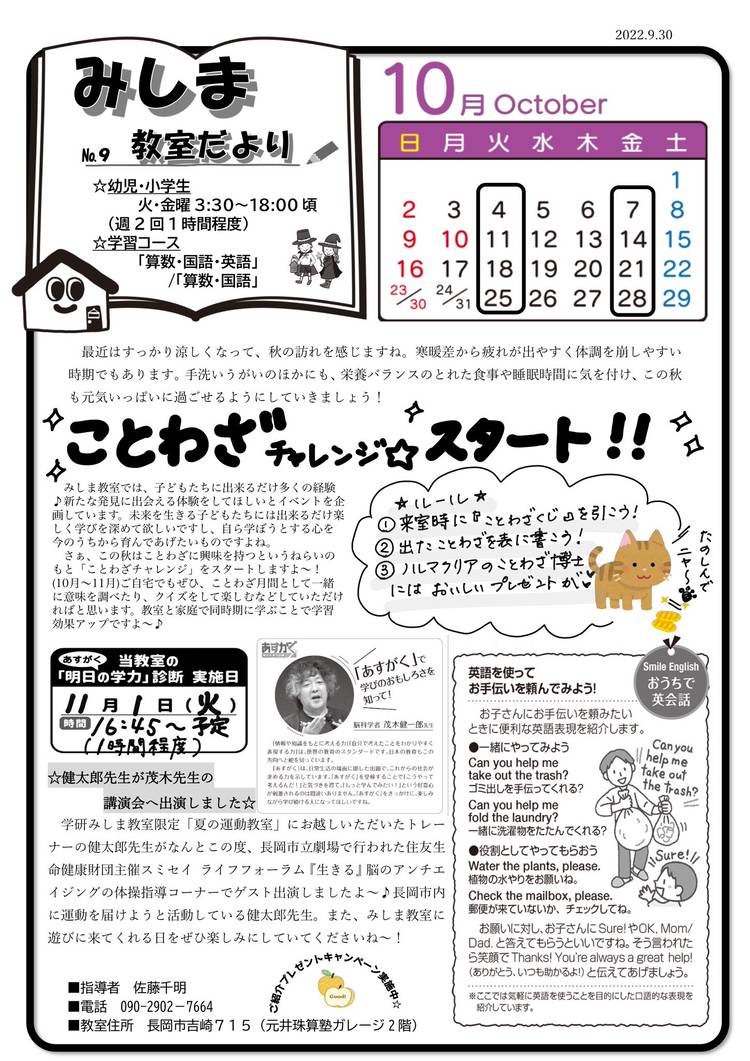 2022.9.30
みしま
No.9 教室だより
☆幼児・小学生
火・金曜 3:30～18:00 頃
（週２回１時間程度）
☆学習コース
「算数・国語・英語」
/「算数・国語」
10月 October
日 月 火 水 木 金 土
1
2 3 4 5 6 7 8
9 10 11 12 13 14 15
16 17 18 19 20 21 22
23/30 24/31 25 26 27 28 29
最近はすっかり涼しくなって、秋の訪れを感じますね。寒暖差から疲れが出やすく体調を崩しやすい
時期でもあります。手洗いうがいのほかにも、栄養バランスのとれた食事や睡眠時間に気を付け、この秋
も元気いっぱいに過ごせるようにしていきましょう！
ことわざチャレンジ☆スタート!!
みしま教室では、子どもたちに出来るだけ多くの経験
♪新たな発見に出会える体験をしてほしいとイベントを企
画しています。未来を生きる子どもたちには出来るだけ楽
しく学びを深めて欲しいですし、自ら学ぼうとする心を
今のうちから育んであげたいものですよね。
さぁ、この秋はことわざに興味を持つというねらいの
もと「ことわざチャレンジ」をスタートしますよ～！
(10月～11月)ご自宅でもぜひ、ことわざ月間として一緒
に意味を調べたり、クイズをして楽しむなどしていただけ
ればと思います。教室と家庭で同時期に学ぶことで学習
効果アップですよ～♪
★ルール★
①来室時に『ことわざくじ』を引こう！
②出たことわざを表に書こう！
③ノルマクリアのことわざ博士
にはおいしいプレゼントが♥
たのしんで
ニャ～
あすがく 当教室の
「明日の学力」診断 実施日
11月1日(火)
時間 16:45～予定
(1時間程度)
あすがく
「あすがく」で
学びのおもしろさを
知って！
脳科学者 茂木健一郎先生
「情報や知識をもとに考える力」「自分で考えたことをわかりやすく
表現する力」は、世界の教育のスタンダードです。日本の教育もこの
方向へと舵を切っています。
「あすがく」は、日常生活の場面に即した出題で、これからの社会が
求める力を示しています。「あすがく」を受検することで「こうやって
考えるんだ！」と気づきを得て、「もっと学んでみたい！」という好奇心
が刺激されるのは間違いありません。「あすがく」をきっかけに、楽しみ
ながら学び続ける人になってほしいですね。
☆健太郎先生が茂木先生の
講演会へ出演しました☆
学研みしま教室限定「夏の運動教室」にお越しいただいたトレー
ナーの健太郎先生がなんとこの度、長岡市立劇場で行われた住友生
命健康財団主催スミセイ ライフフォーラム『生きる』脳のアンチエ
イジングの体操指導コーナーでゲスト出演しましたよ～♪長岡市内
に運動を届けようと活動している健太郎先生。また、みしま教室に
遊びに来てくれる日をぜひ楽しみにしていてくださいね～！
Smile English
おうちで
英会話
英語を使って
お手伝いを頼んでみよう！
お子さんにお手伝いを頼みたい
ときに便利な英語表現を紹介します。
●一緒にやってみよう
Can you help me
take out the trash?
ゴミ出しを手伝ってくれる？
Can you help me
fold the laundry?
一緒に洗濯物をたたんでくれる？
●役割としてやってもらおう
Water the plants, please.
植物の水やりをお願いね。
Check the mailbox, please.
郵便が来ていないか、チェックしてね。
Can you
help me
take out
the trash?
Sure!
お願いに対し、お子さんに Sure! や OK, Mom/
Dad. と答えてもらうといいですね。そう言われた
ら笑顔で Thanks! You're always a great help!
（ありがとう、いつも助かるよ！）と伝えてあげましょう。
※ここでは気軽に英語を使うことを目的にした口語的な表現を
紹介しています。
ご紹介プレゼントキャンペーン実施中☆
Good!
■指導者 佐藤千明
■電話 090-2902－7664
■教室住所 長岡市吉崎７１５（元井珠算塾ガレージ２階）